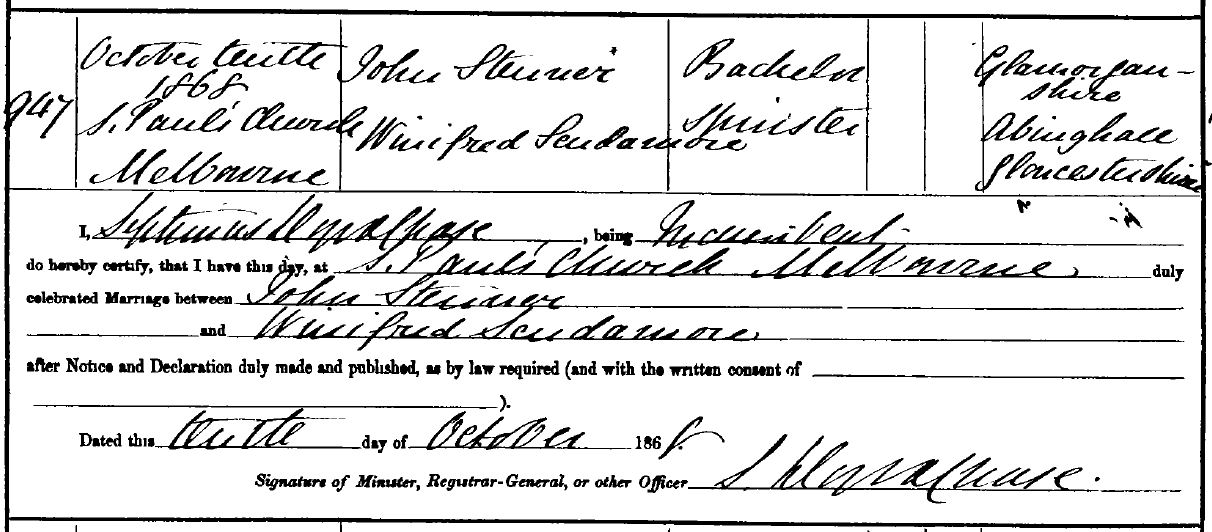 947
October tenth
1868
S. Paul's Church
Melbourne
John Stenner
Winifred Scudamore
Bachelor
Spinster
Glamorgan-
shire
Abinghall
Gloucestershire
I, Septimus Lloyd Chase, being Incumbent
do hereby certify, that I have this day, at S. Paul's Church Melbourne, duly
celebrated Marriage between John Stenner
and Winifred Scudamore
after Notice and Declaration duly made and published, as by law required (and with the written consent of
).
Dated this tenth day of October 1868.
Signature of Minister, Registrar-General, or other Officer S. Lloyd Chase.